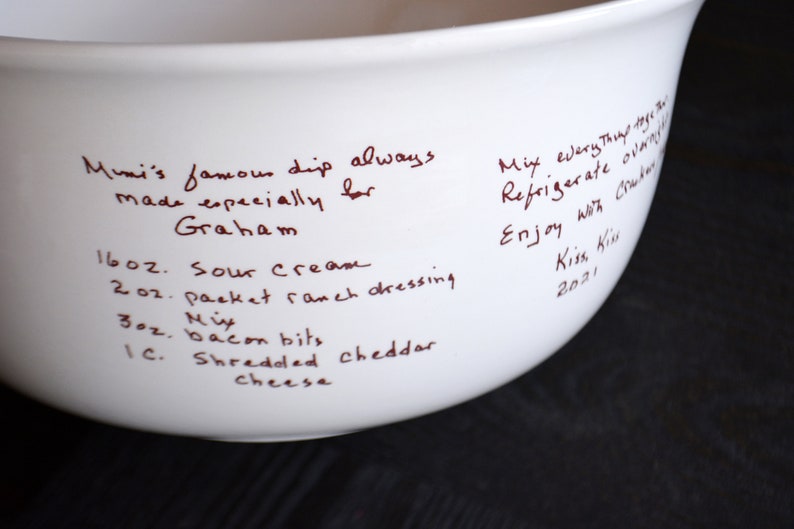 Mimi's famous dip always
made especially for
Graham
16 oz. sour cream
2 oz. packet ranch dressing
Mix
3 oz. bacon bits
1 c. Shredded cheddar
cheese
Mix everything together
Refrigerate overnight
Enjoy with Crackers
Kiss, Kiss
2021